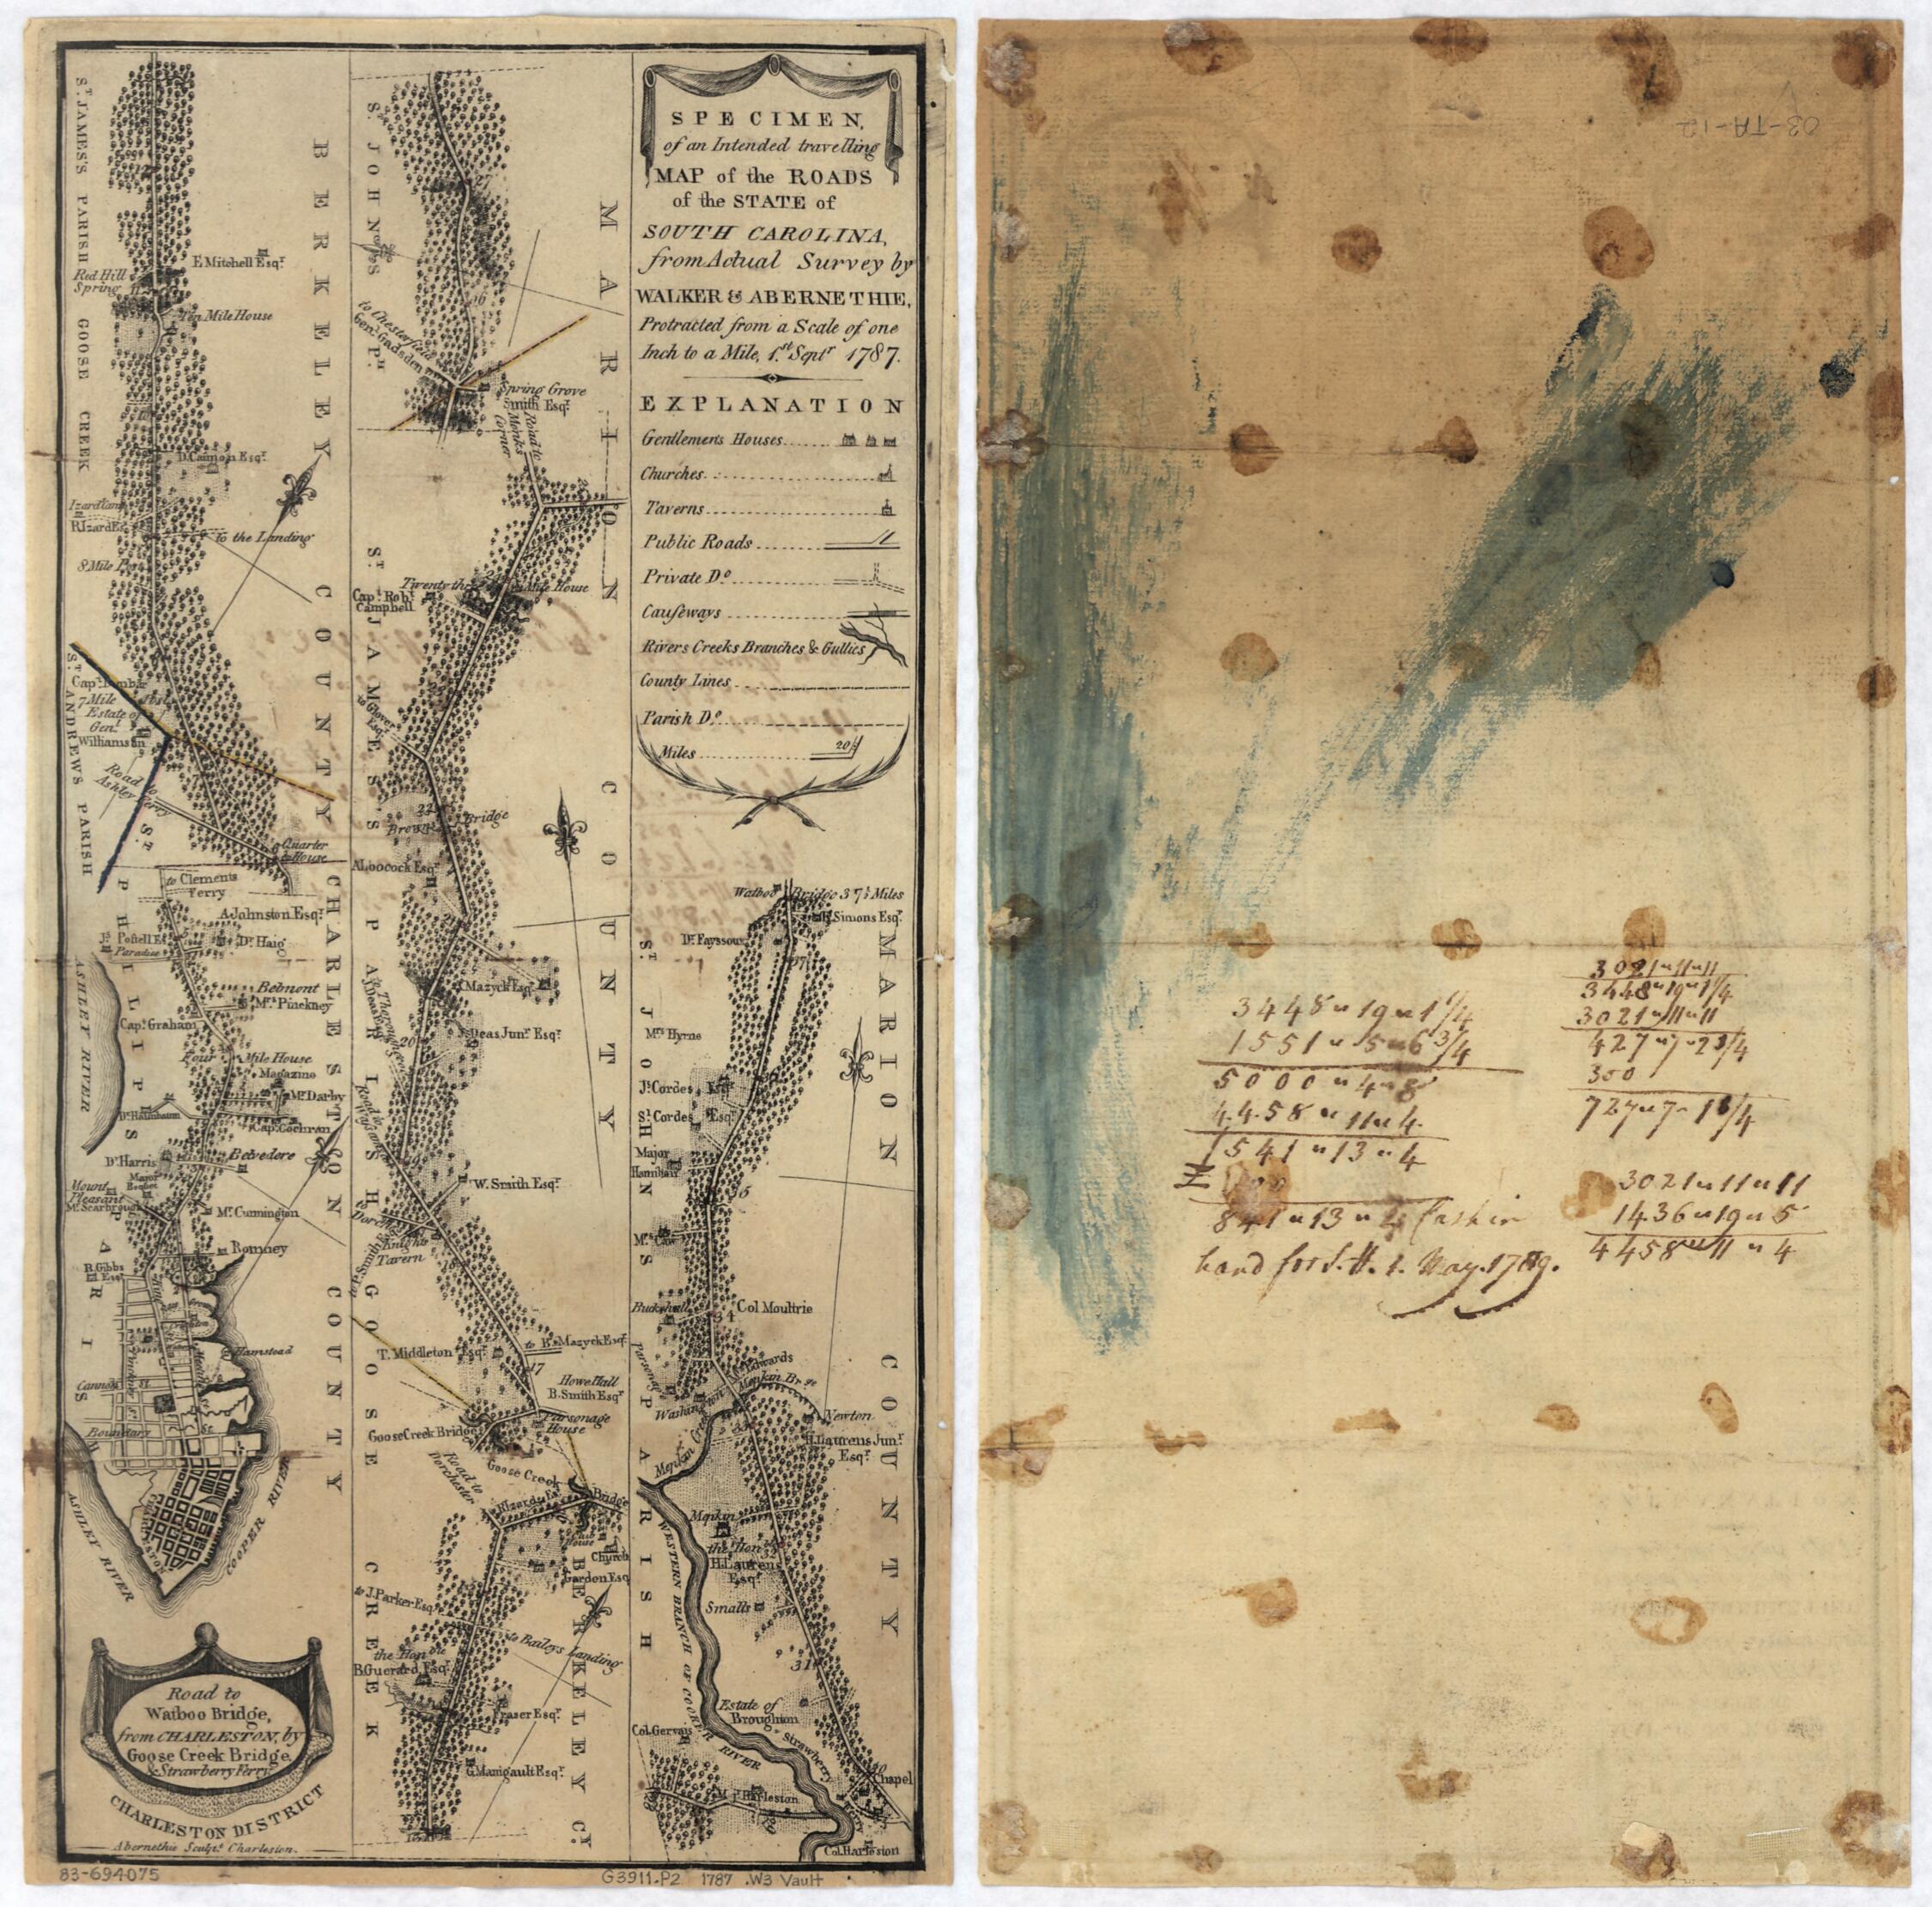 SPECIMEN,
of an Intended travelling
MAP of the ROADS
of the STATE of
SOUTH CAROLINA,
from Actual Survey by
WALKER & ABERNETHIE,
Protracted from a Scale of one
Inch to a Mile, 1.st Septr 1787.
EXPLANATION
Gentlemens Houses
Churches
Taverns
Public Roads
Private Do
Causeways
Rivers Creeks Branches & Gullies
County Lines
Parish Do
Miles 20
ST. JAMES'S PARISH GOOSE CREEK
BERKELEY COUNTY
E Mitchell Esqr.
Red Hill
Spring
Ten Mile House
D. Cannon Esqr.
Izard Camp
R. Izard Esqr
to the Landing
8 Mile Post
ST. ANDREWS PARISH
7 Mile Post
Estate of
Genl.
Williamson
Road to
Ashley Ferry
Quarter
House
to Clements
Ferry
ST. PHILIPS PARISH
CHARLESTON COUNTY
A Johnston Esqr.
Dr. Haig
Paradise
ASHLEY RIVER
Belmont
Mrs. Pinckney
Capt. Graham
Four Mile House
Magazine
Mr. Darby
Capt. Cochran
Dr. Harris
Belvedere
Major
Mount
Pleasant
Mr. Scarbrough
Mr. Cunnington
Romney
R. Gibbs
Esqr
Hamstead
Cannon St.
Boundary St.
ASHLEY RIVER
COOPER RIVER
Road to
Watboo Bridge,
from CHARLESTON, by
Goose Creek Bridge,
& Strawberry Ferry
CHARLESTON DISTRICT
Abernethie Sculpt. Charleston.
ST. JOHN'S PH.
MARION COUNTY
27
26
to Chesterfield
Genl. Gadsden
Spring Grove
Smith Esqr.
Road to
Monks
Corner
Twenty three Mile House
Capt. Robt.
Campbell
ST. JAMES'S PARISH GOOSE CREEK
to Glover
Esqr.
22
Brown Bridge
A Loocock Esqr.
21
Mazyck Esqr.
Deas Junr. Esqr.
20
W. Smith Esqr.
Knights
Tavern
18
T. Middleton Esqr.
to B. Mazyck Esqr.
17
Howe Hall
B. Smith Esqr
Parsonage
House
Goose Creek Bridge
Goose Creek
Road to
Dorchester
R Izards Esqr.
Bridge
Club
House
Church
Gardon Esq
to J. Parker Esqr.
to Baileys Landing
the Honble
B. Guerard Esqr.
Fraser Esqr.
G Manigault Esqr.
BERKELEY CY.
Watboo Bridge 37½ Miles
K. Simons Esqr.
Dr. Fayssoux
37
Mrs Hyrne
Js. Cordes Esqr.
Sl. Cordes Esqr.
Major
Hamilton
35
ST. JOHNS PARISH
MARION COUNTY
Buckshall
Col Moultrie
34
Parsonage
Washington
Edwards
Mepkin Brge
Newton
H. Laurens Junr.
Esqr.
33
Mepkin Creek
Mepkin
the Hon.
H. Laurens
Esqr.
32
Smalls
WESTERN BRANCH of COOPER RIVER
31
Estate of
Broughton
Col. Gervais
Strawberry
Chapel
Harleston
Ferry
Col. Harleston
83-694075
G3911.P2 1787 .W3 Vault
03-TA-12
3448 " 19 " 1 1/4
1551 " 5 " 6 3/4
5000 " 4 " 8
4458 " 11 " 4
1541 " 13 " 4
841 " 13 " 4 Cash in
hand for S. H. 1. May. 1789.
3021 " 11 " 11
3448 " 19 " 1 1/4
3021 " 11 " 11
427 " 7 " 2 3/4
300
3021 " 11 " 11
1436 " 19 " 5
4458 " 11 " 4